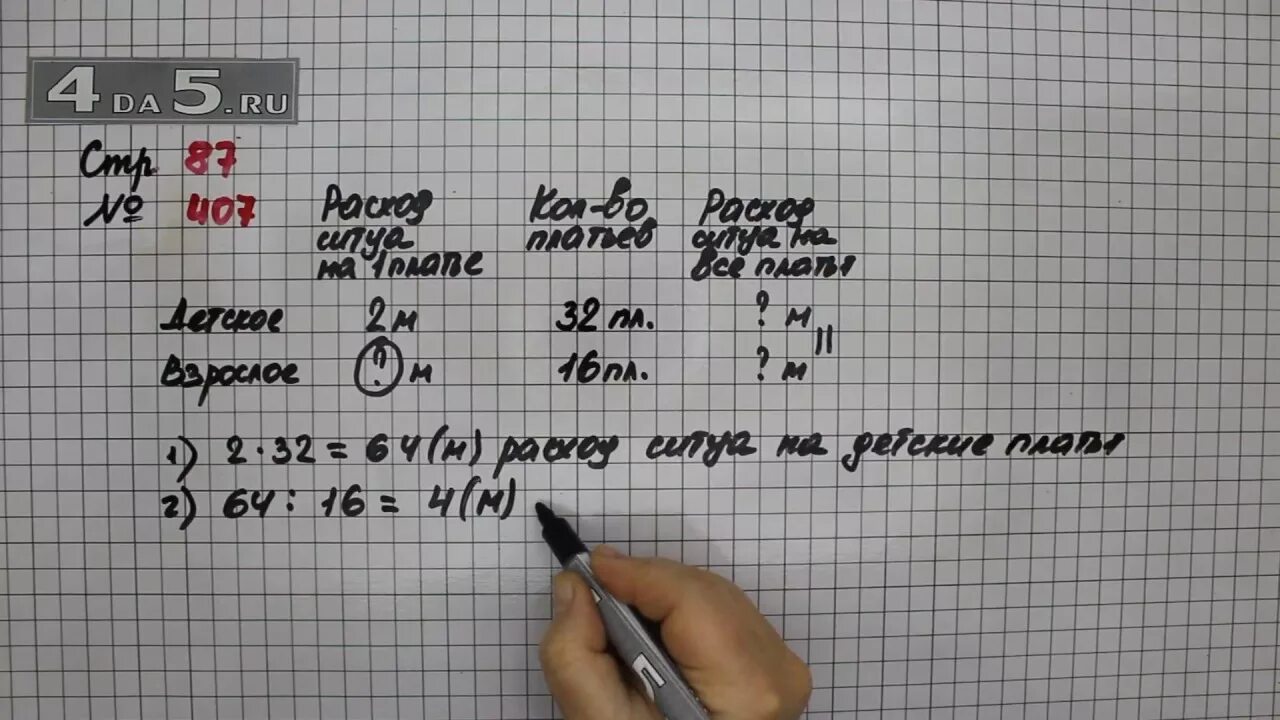 4DA5.RU
Стр 87
№ 407
Расход Кол-во Расход
ситца платьев ситца на
на 1 платье все платья
Детское 2 м 32 пл. ? м
Взрослое ? м 16 пл. ? м
1) 2·32 = 64 (м) расход ситца на детские платья
2) 64 : 16 = 4 (м)
5